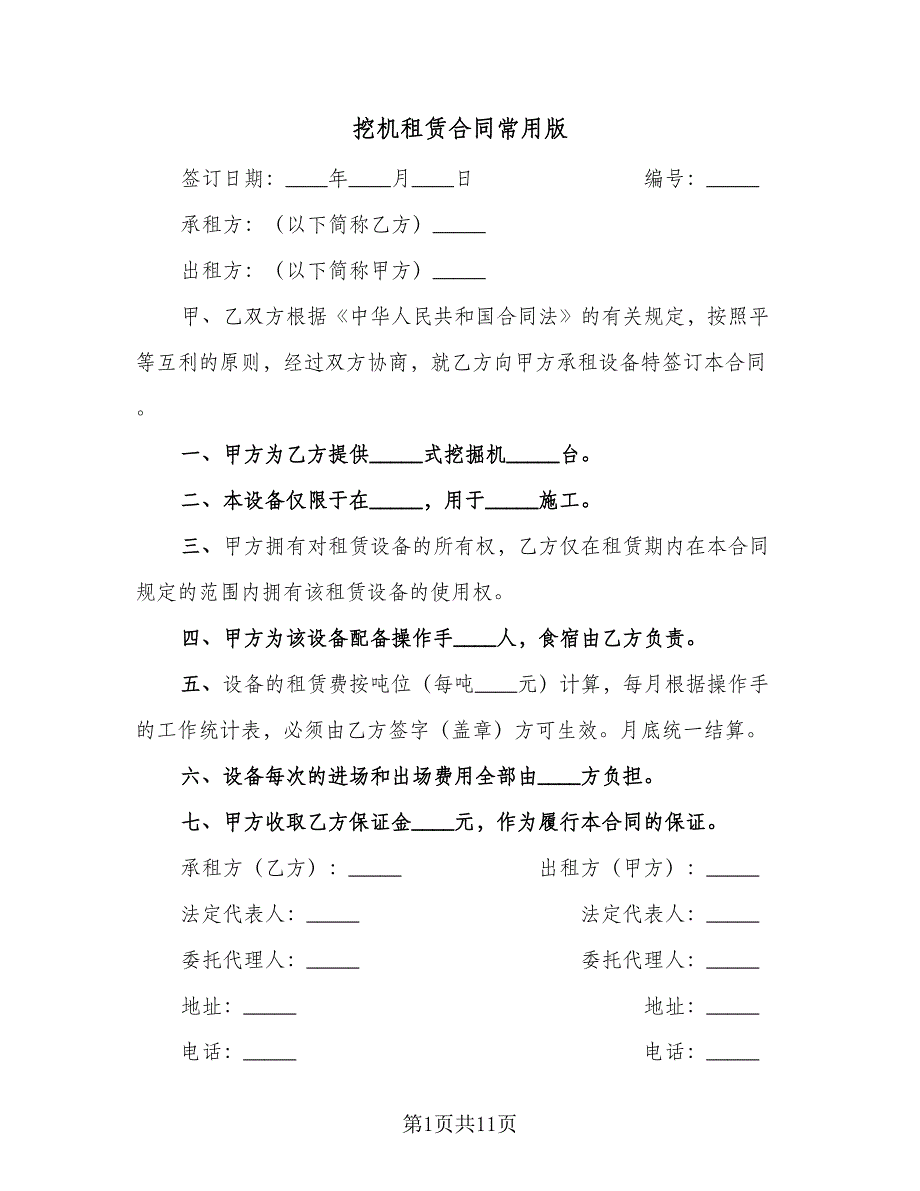 挖机租赁合同常用版
签订日期：____年____月____日 编号：_____
承租方：（以下简称乙方）_____
出租方：（以下简称甲方）_____
甲、乙双方根据《中华人民共和国合同法》的有关规定，按照平
等互利的原则，经过双方协商，就乙方向甲方承租设备特签订本合同
。
一、甲方为乙方提供_____式挖掘机_____台。
二、本设备仅限于在_____，用于_____施工。
三、甲方拥有对租赁设备的所有权，乙方仅在租赁期内在本合同
规定的范围内拥有该租赁设备的使用权。
四、甲方为该设备配备操作手____人，食宿由乙方负责。
五、设备的租赁费按吨位（每吨____元）计算，每月根据操作手
的工作统计表，必须由乙方签字（盖章）方可生效。月底统一结算。
六、设备每次的进场和出场费用全部由____方负担。
七、甲方收取乙方保证金____元，作为履行本合同的保证。
承租方（乙方）：_____ 出租方（甲方）：_____
法定代表人：_____ 法定代表人：_____
委托代理人：_____ 委托代理人：_____
地址：_____ 地址：_____
电话：_____ 电话：_____
第1页共11页